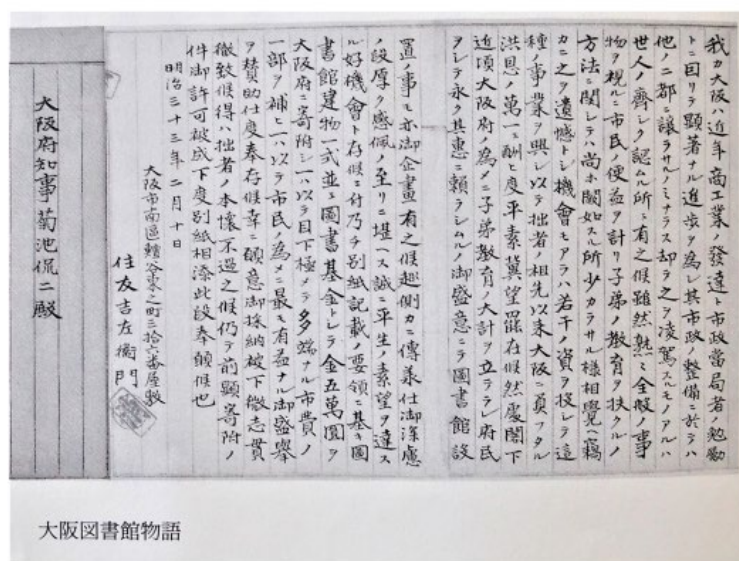 我カ大阪ハ近年商工業ノ發達ト市政當局者ノ勉勵
トニ因リテ顕著ナル進歩ヲ為シ其市政ノ整備ニ於テハ
他ノ二都ニ譲ラサルノミナラス却テ之ヲ凌駕スルモノアルハ
世人ノ齊シク認ムル所ニ有之候雖然熟ニ全般ノ事
物ヲ視ルニ市民ノ便益ヲ計リ子弟ノ教育ヲ扶クルノ
方法ニ関シテハ尚ホ闕如スル所少カラサル様相覺ヘ竊
カニ之ヲ遺憾トシ機會モアラハ若干ノ資ヲ投シテ這
種ノ事業ヲ興シ以テ拙者ノ祖先以来大阪ニ負フタル
洪恩ノ萬一ニ酬ヒ度平素冀望罷在候然處閣下
近頃大阪府ノ為メニ子弟教育ノ大計ヲ立テラレ府民
ヲシテ永ク其惠ニ頼ラシムルノ御盛意ニテ圖書館設
置ノ事モ亦御企畫有之候趣側カニ傳承仕御深慮
ノ段厚ク感佩ノ至リニ堪ヘス誠ニ平生ノ素望ヲ達ス
ル好機會ト存候ニ付乃チ別紙記載ノ要領ニ基キ圖
書館建物一式並ニ圖書基金トシテ金五萬圓ヲ
大阪府ニ寄附シ一ハ以テ目下極メテ多端ナル市費ノ
一部ヲ補ヒ一ハ以テ市民ノ為メニ最モ有益ナル御盛舉
ヲ賛助仕度奉存候幸ニ願意御採納被下微志貫
徹致候得ハ拙者ノ本懐不過之候仍テ前顕寄附ノ
件御許可被成下度別紙相添此段奉願候也
明治三十三年二月十日
大阪市南區鰻谷東之町三拾六番屋敷
住友吉左衛門
大阪府知事菊池侃二殿
大阪図書館物語